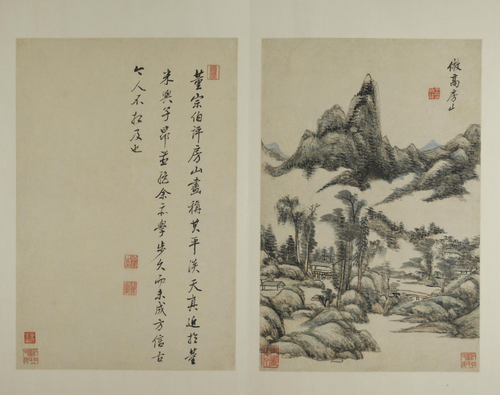 倣高房山
董宗伯評房山畫稱其平淡天真近於董
米與子昂並絕余亦學步久而未成方信古
今人不相及也